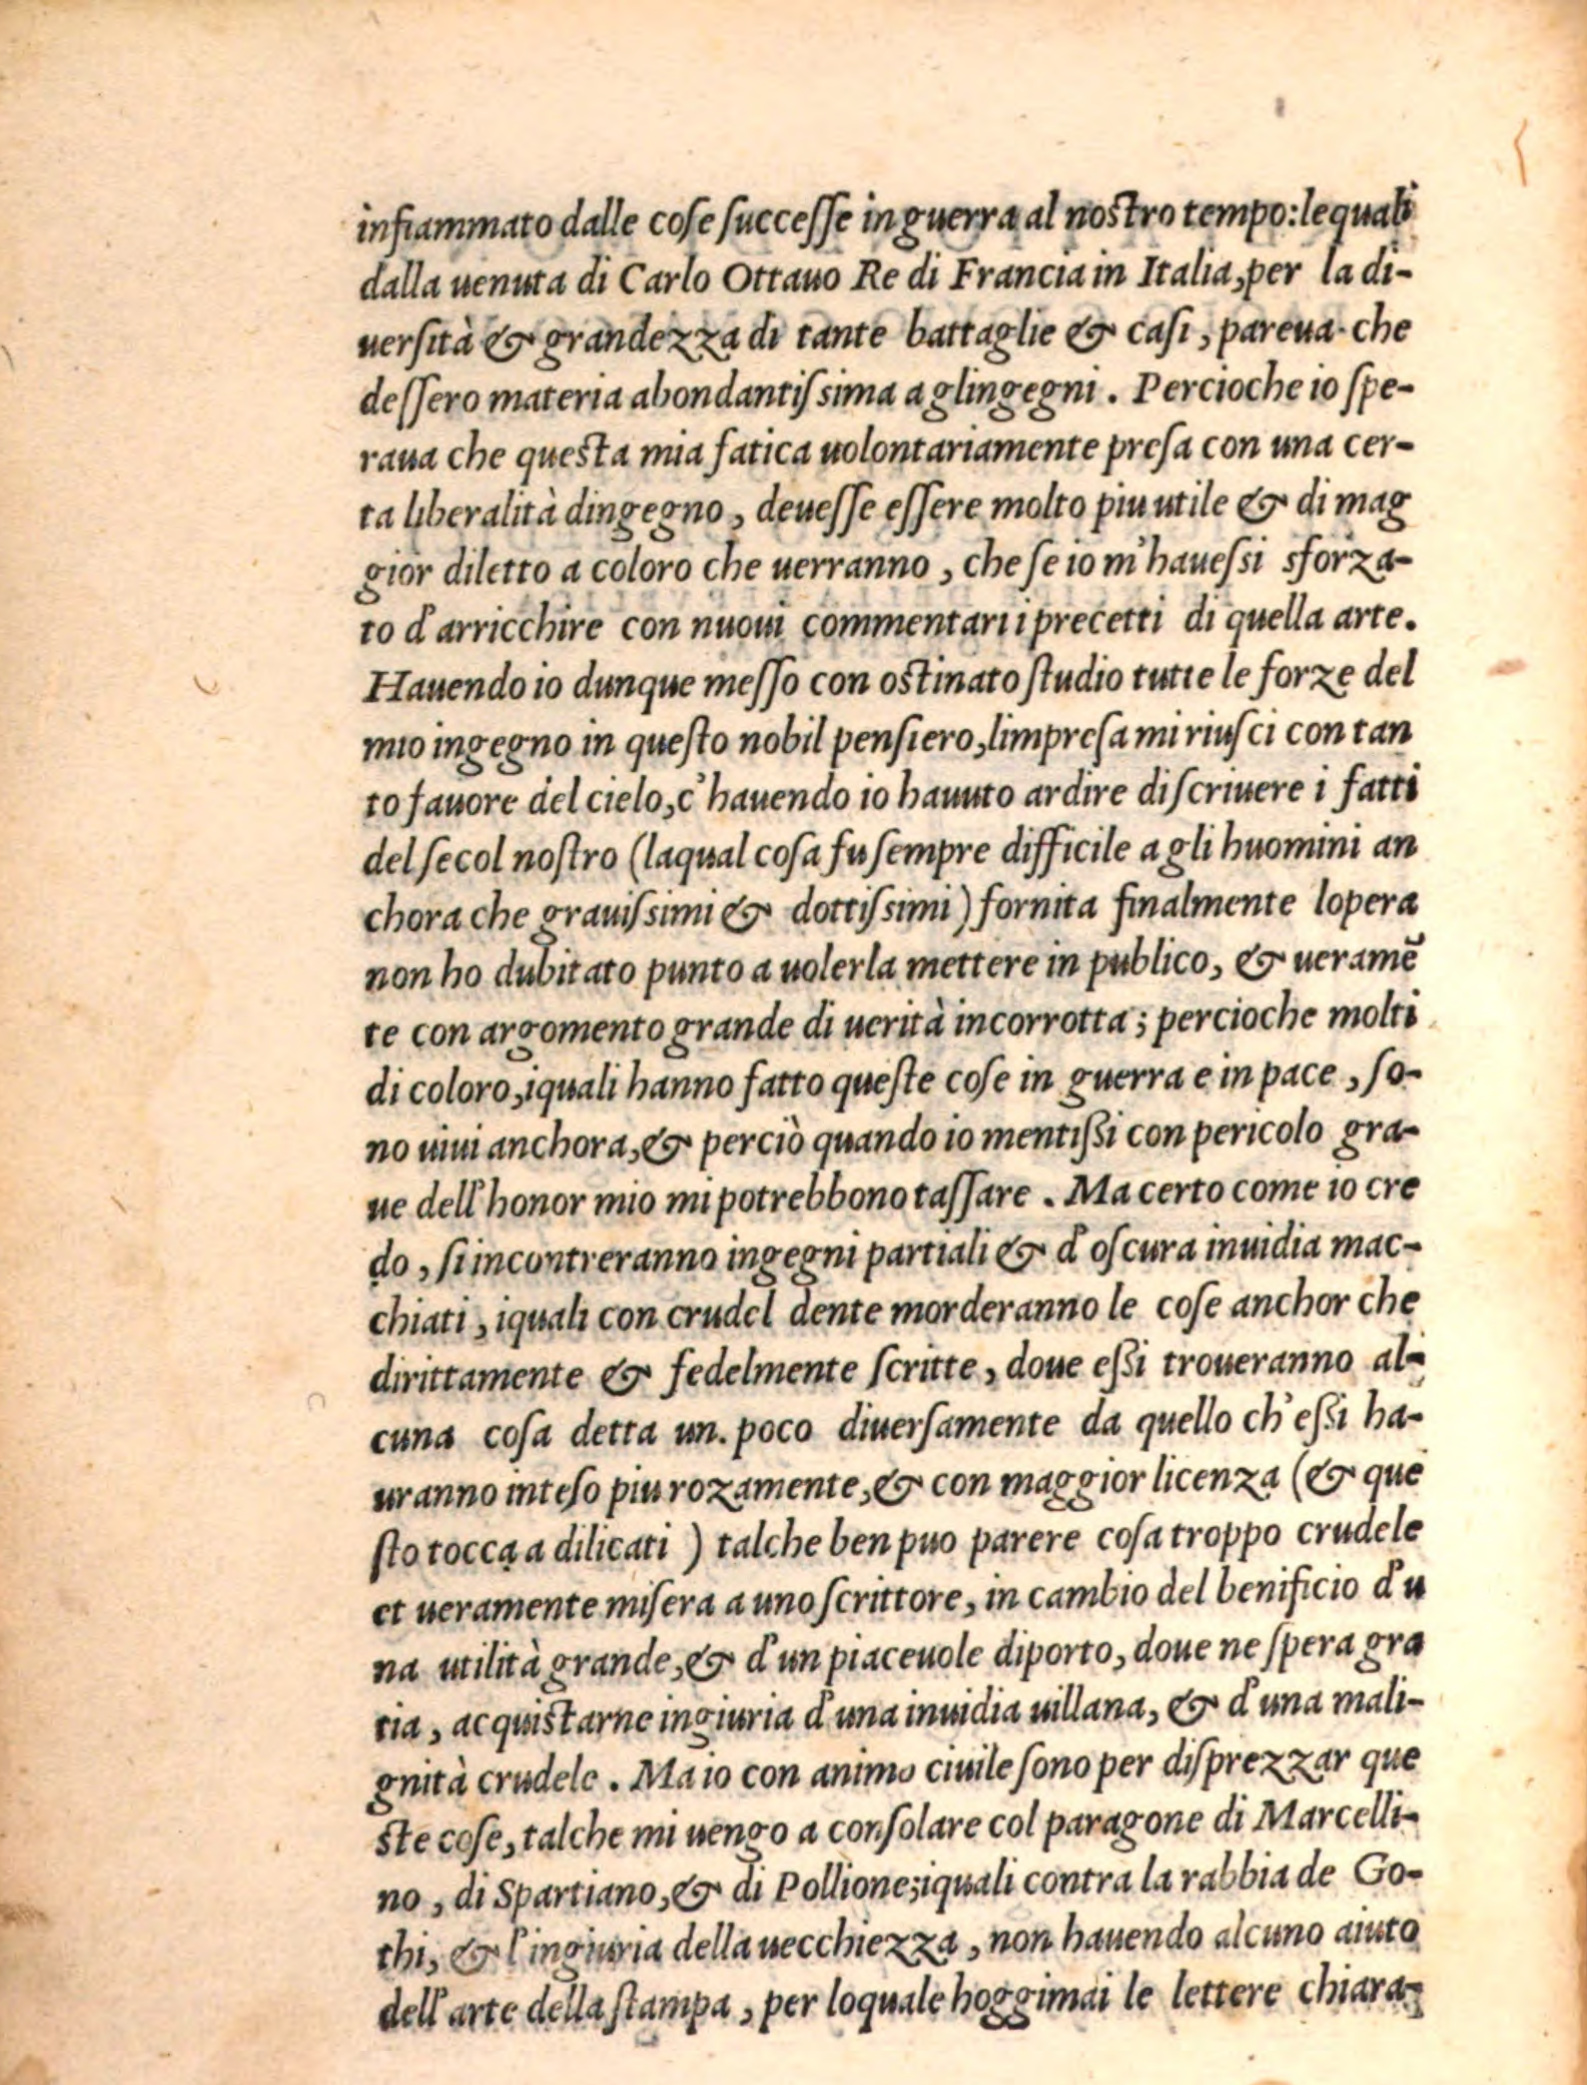 infiammato dalle cose successe in guerra al nostro tempo: lequali
dalla uenuta di Carlo Ottauo Re di Francia in Italia, per la di-
uersità & grandezza di tante battaglie & casi, pareua che
dessero materia abondantissima a glingegni. Percioche io spe-
raua che questa mia fatica uolontariamente presa con una cer-
ta liberalità dingegno, deuesse essere molto piu utile & di mag
gior diletto a coloro che uerranno, che se io m'hauessi sforza-
to d'arricchire con nuoui commentari i precetti di quella arte.
Hauendo io dunque messo con ostinato studio tutte le forze del
mio ingegno in questo nobil pensiero, limpresa mi riusci con tan
to fauore del cielo, c'hauendo io hauuto ardire di scriuere i fatti
del secol nostro (laqual cosa fu sempre difficile a gli huomini an
chora che grauissimi & dottissimi) fornita finalmente lopera
non ho dubitato punto a uolerla mettere in publico, & ueramẽ
te con argomento grande di uerità incorrotta; percioche molti
di coloro, iquali hanno fatto queste cose in guerra e in pace, so-
no uiui anchora, & perciò quando io mentißi con pericolo gra-
ue dell'honor mio mi potrebbono tassare. Ma certo come io cre
do, si incontreranno ingegni partiali & d'oscura inuidia mac-
chiati, iquali con crudel dente morderanno le cose anchor che
dirittamente & fedelmente scritte, doue eßi troueranno al-
cuna cosa detta un. poco diuersamente da quello ch'eßi ha-
uranno inteso piu rozamente, & con maggior licenza (& que
sto tocca a dilicati) talche ben puo parere cosa troppo crudele
et ueramente misera a uno scrittore, in cambio del benificio d'u
na utilità grande, & d'un piaceuole diporto, doue ne spera gra
tia, acquistarne ingiuria d'una inuidia uillana, & d'una mali-
gnità crudele. Ma io con animo ciuile sono per disprezzar que
ste cose, talche mi uengo a consolare col paragone di Marcelli-
no, di Spartiano, & di Pollione; iquali contra la rabbia de Go-
thi, & l'ingiuria della uecchiezza, non hauendo alcuno aiuto
dell'arte della stampa, per loquale hoggimai le lettere chiara-